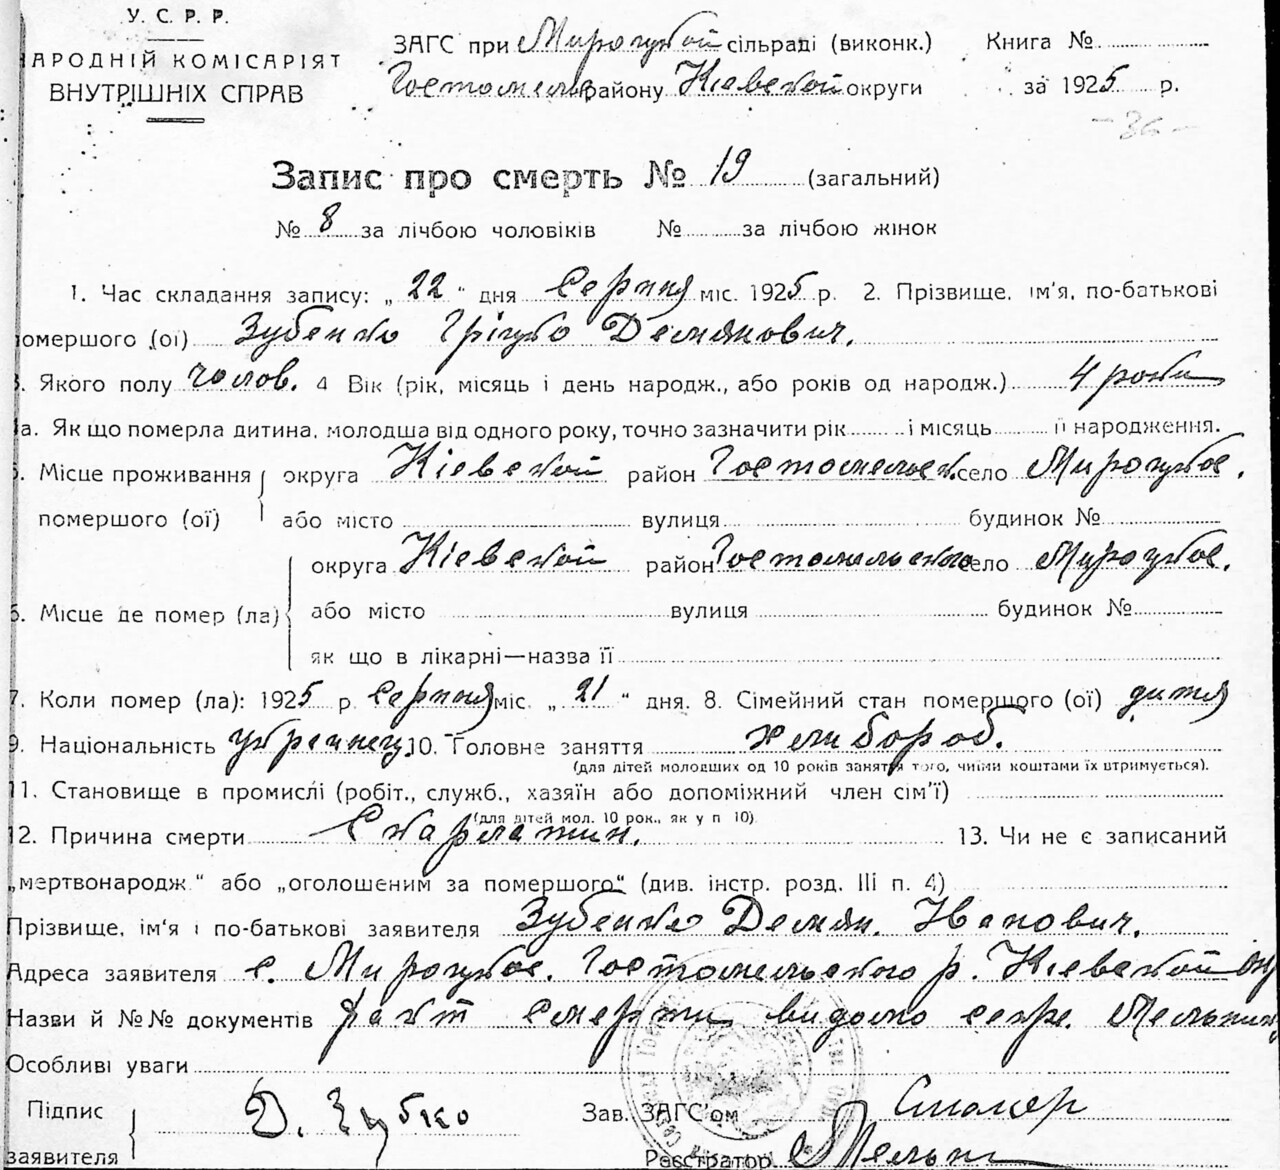 У. С. Р. Р.
НАРОДНІЙ КОМІСАРІЯТ
ВНУТРІШНІХ СПРАВ
ЗАГС при Мироцкой сільраді (виконк.) Книга №
Гостомельс району Кіевской округи за 1925 р.
- 36 -
Запис про смерть № 19 (загальний)
№ 8 за лічбою чоловіків № за лічбою жінок
1. Час складання запису: „22“ дня Серпня міс. 1925 р. 2. Прізвище, ім'я, по-батькові
помершого (ої) Зубенко Гріцко Демянович.
3. Якого полу чолов. 4 Вік (рік, місяць і день народж., або років од народж.) 4 роки
а. Як що померла дитина, молодша від одного року, точно зазначити рік і місяць її народження.
5. Місце проживання округа Кіевской район Гостомельск. село Мироцкое.
помершого (ої) або місто вулиця будинок №
округа Кіевской район Гостомельского село Мироцкое.
6. Місце де помер (ла) або місто вулиця будинок №
як що в лікарні—назва її
7. Коли помер (ла): 1925 р Серпня міс. „21“ дня. 8. Сімейний стан помершого (ої) дитя
9. Національність украинец 10. Головне заняття хлибороб.
(для дітей молодших од 10 років заняття того, чиїми коштами їх утримується).
11. Становище в промислі (робіт., служб., хазяїн або допоміжний член сім'ї)
(для дітей мол. 10 рок., як у п 10)
12. Причина смерти Скарлатин. 13. Чи не є записаний
„мертвонародж“ або „оголошеним за помершого“ (див. інстр. розд. III п. 4)
Прізвище, ім'я і по-батькові заявителя Зубенко Демян. Иванович.
Адреса заявителя с. Мироцкое. Гостомельского р. Кіевской окр
Назви й №№ документів факт смерти видомо секр. Мельник
Особливі уваги
Підпис заявителя Д. Зубко Зав. ЗАГС'ом
Реєстратор Мельник